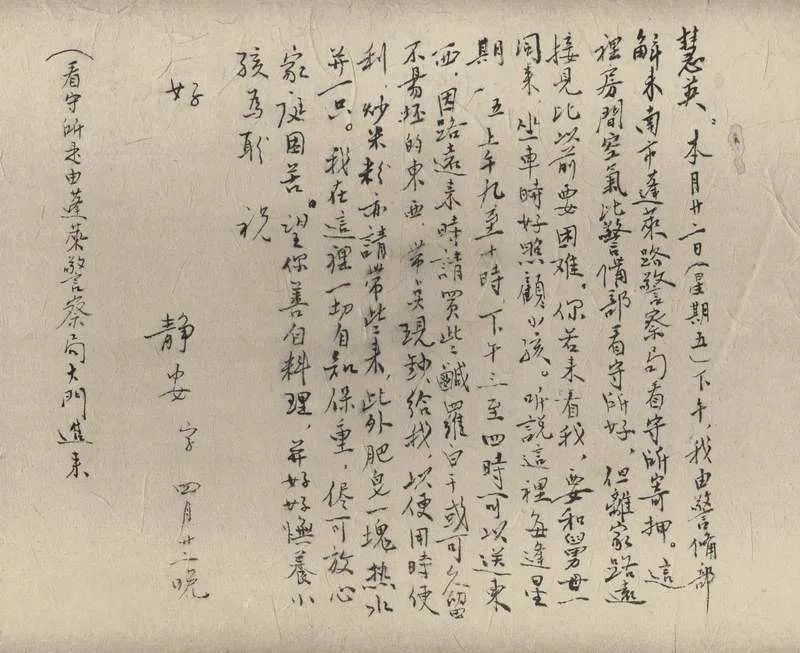 慧英。本月廿二日（星期五）下午，我由警備部
解来南市蓬萊路警察局看守所寄押。這
裡房間空氣比警備部看守所好，但離家路遠
接見比以前要困难。你若来看我，要和舅母
同来，坐車時好照顧小孩。听說這裡每逢星
期一、五上午九至十時，下午三至四時可以送東
西，因路遠来時請買些鹹蘿白干或可久留
不易坯的東西，帶点現鈔給我，以便用時便
利，炒米粉亦請帶些来，此外肥皂一塊热水
并一只。我在這裡一切自知保重，儘可放心
家庭困苦。望你善自料理，並好好撫養小
孩為盼 祝
好
静安 字 四月廿二晚
（看守所是由蓬萊警察局大門進来